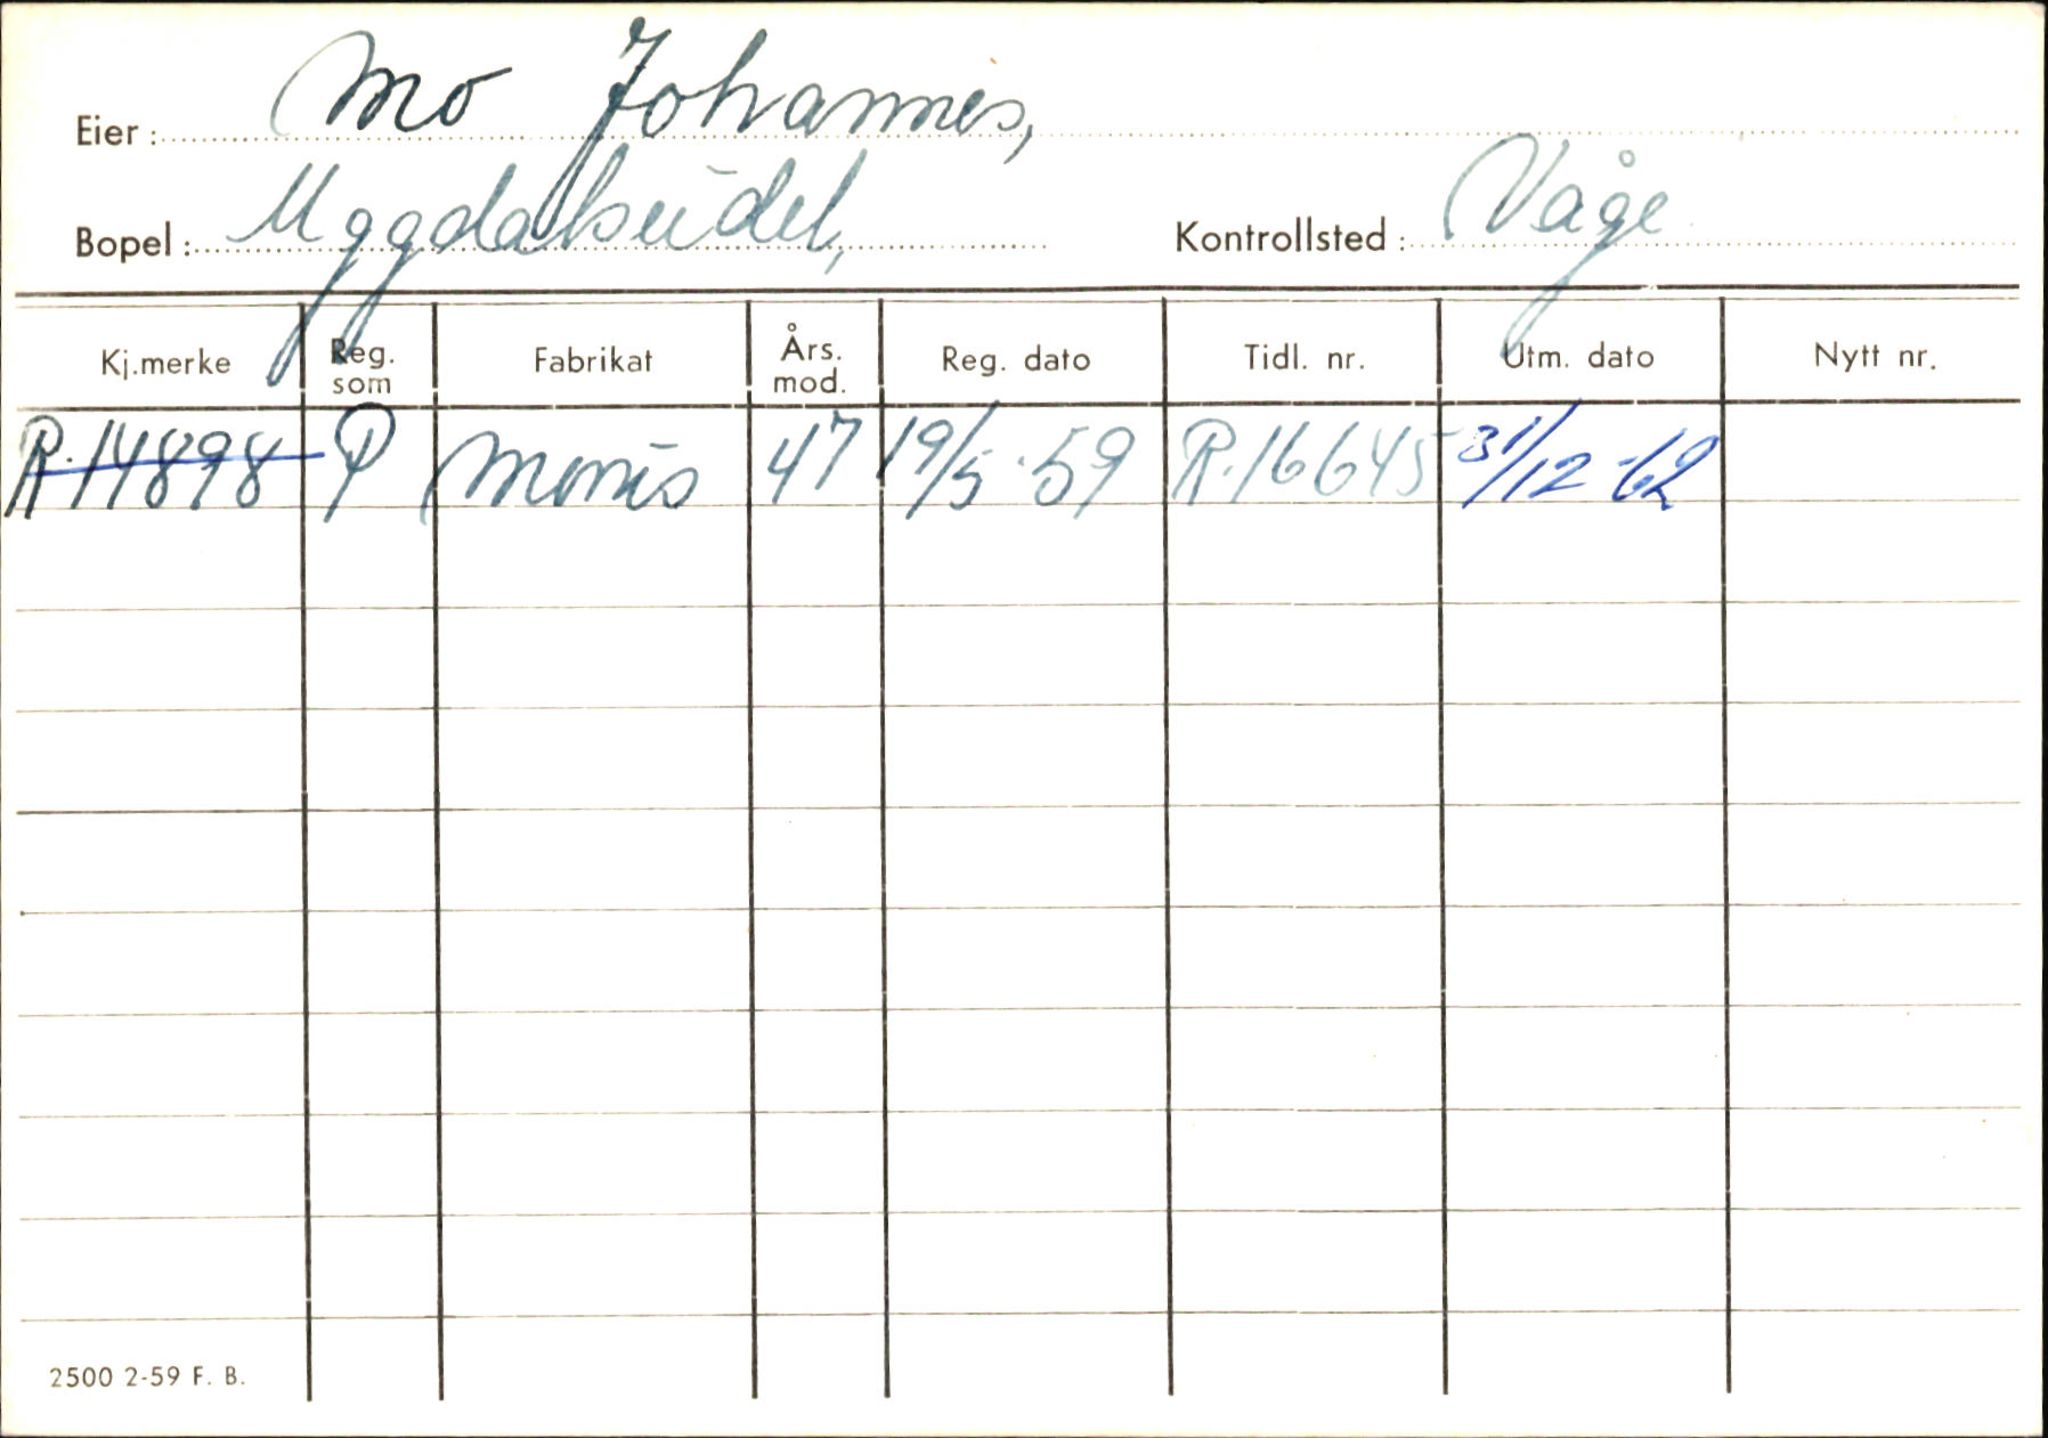 Eier: Mo Johannes,
Bopel: Uggdalseidet, Kontrollsted: Våge
Kj.merke Reg. som Fabrikat Års. mod. Reg. dato Tidl. nr. Utm. dato Nytt nr.
R.14898 P Morris 47 19/5.59 R.16645 31/12-62
2500 2-59 F. B.